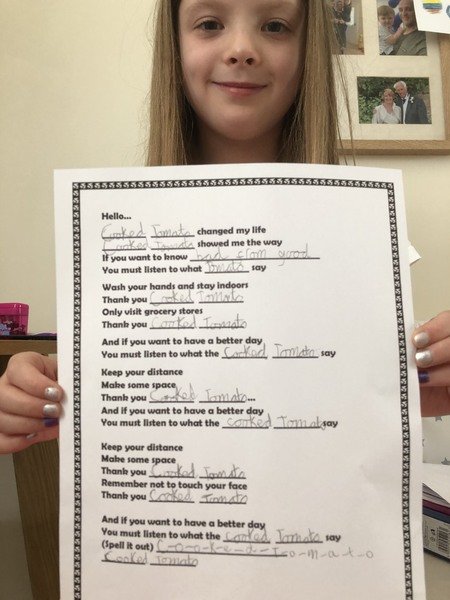 Hello...
Cooked Tomato changed my life
Cooked Tomato showed me the way
If you want to know bad from good
You must listen to what Tomato say
Wash your hands and stay indoors
Thank you Cooked Tomato
Only visit grocery stores
Thank you Cooked Tomato
And if you want to have a better day
You must listen to what the Cooked Tomato say
Keep your distance
Make some space
Thank you Cooked Tomato...
And if you want to have a better day
You must listen to what the cooked Tomato say
Keep your distance
Make some space
Thank you Cooked Tomato
Remember not to touch your face
Thank you Cooked Tomato
And if you want to have a better day
You must listen to what the cooked Tomato say
(Spell it out) C-o-o-k-e-d-T-o-m-a-t-o
Cooked Tomato